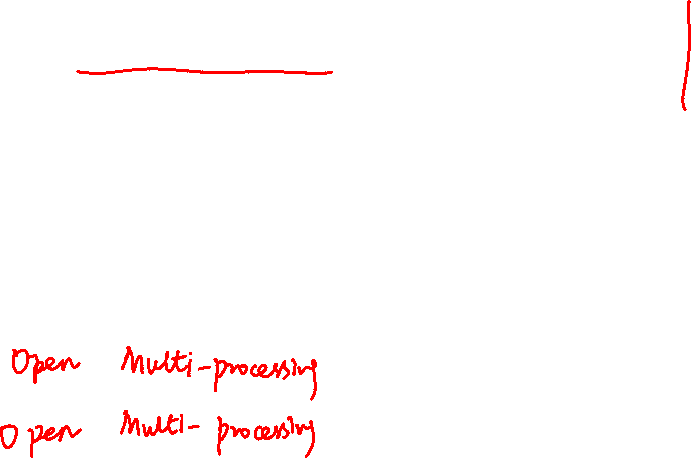 Open Multi-processing
Open Multi-processing